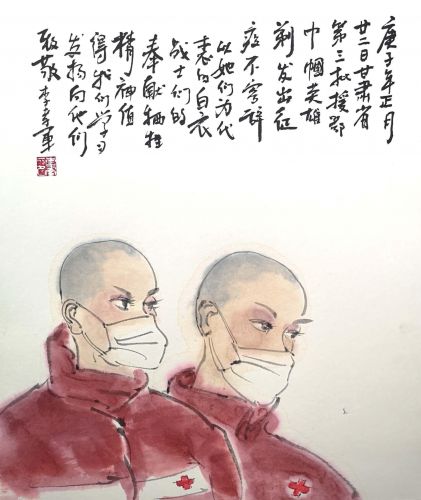 庚子年正月
廿二日甘肃省
第三批援鄂
巾帼英雄
剃发出征
疫不容辞
以她们为代
表的白衣
战士们的
奉献牺牲
精神值
得我们学习
发扬向他们
致敬